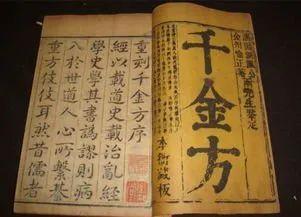 千金方
本衙藏板
重刻千金方序
經以載道史載治亂經
學史學其書譌謬則病
入於世道人心所繫綦
重方伎伎耳然昔儒者